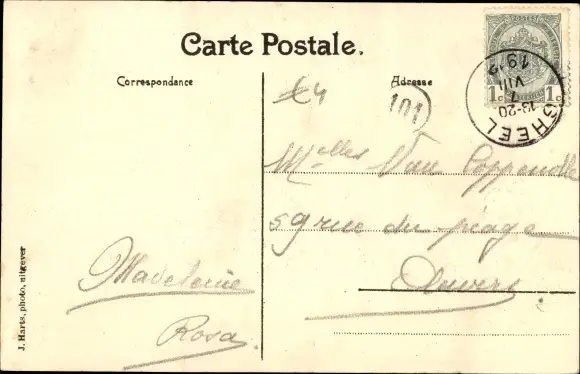 Carte Postale.
Correspondance
Adresse
£4
101
1c 1c
GHEEL
13-20
7
VIII
1912
Melles Van Coppenolle
59 rue du péage
Anvers
Madeleine
Rosa.
J. Harts, photo, uitgever